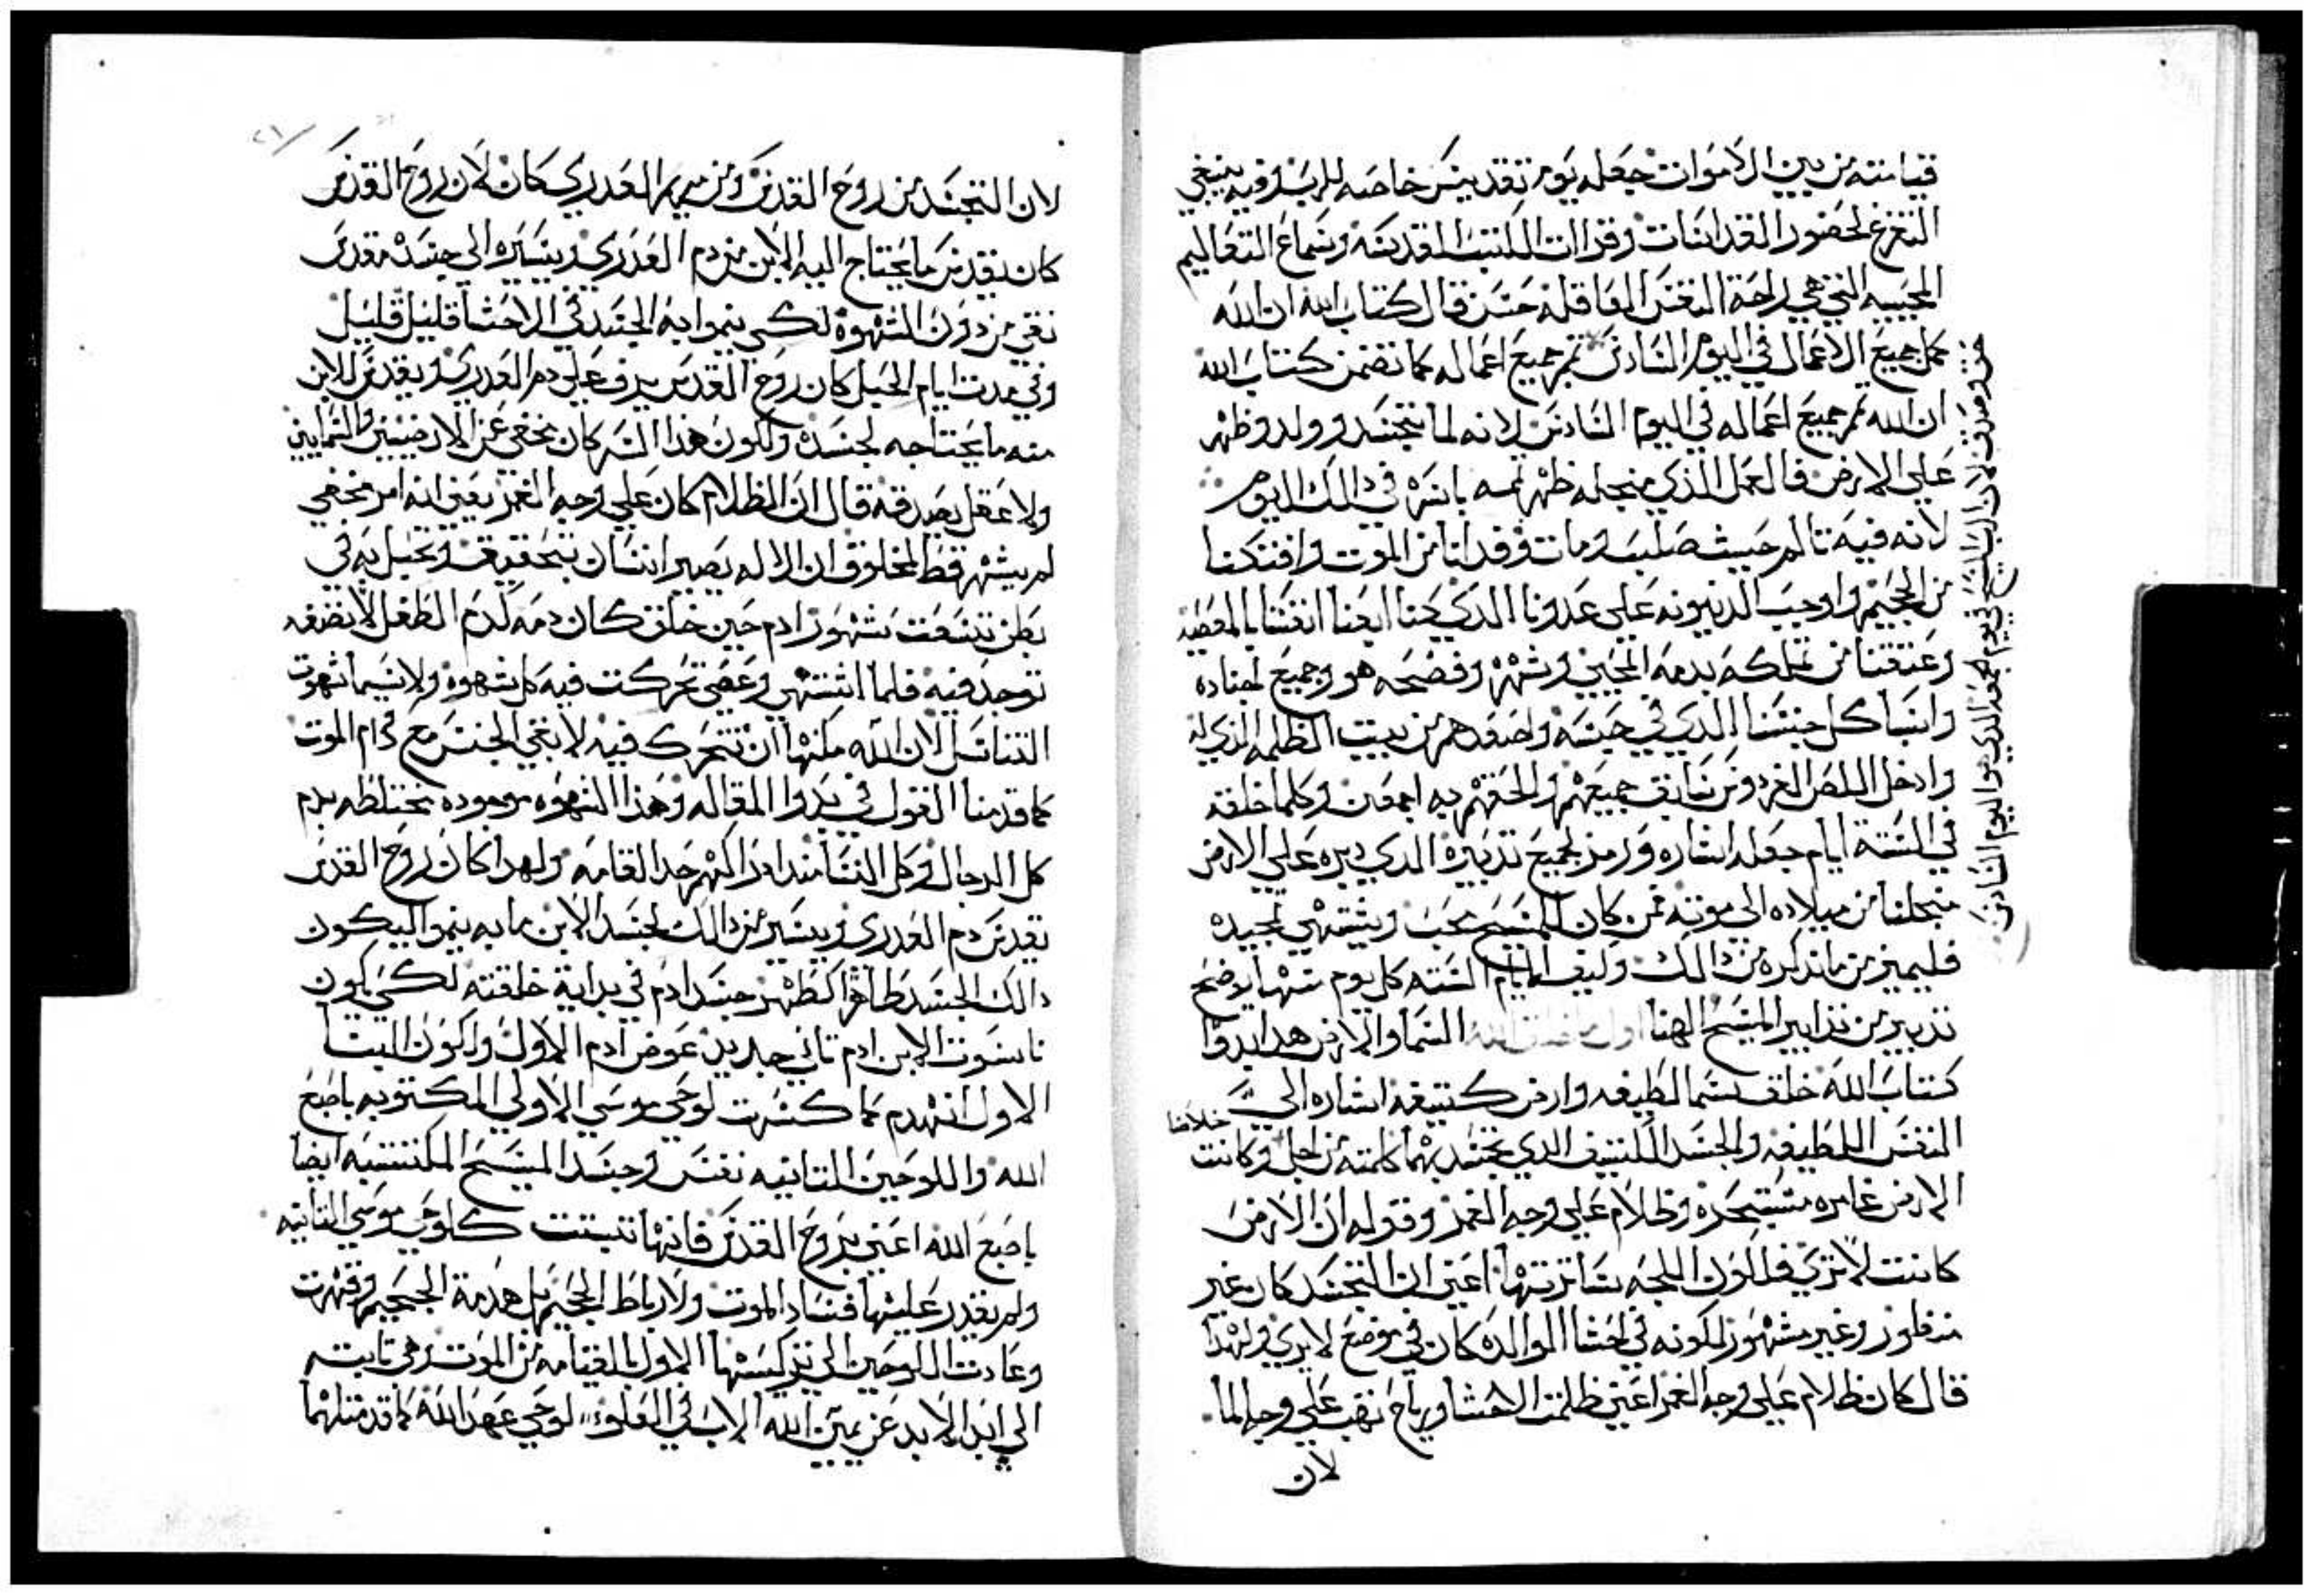 قيامته من بين الاموات جعله يوم تقديس خاصه للرب وفيه ينبغي
التفرغ لحضور القداسات وقراات الكتب المقدسه وسماع التعاليم
المحييه التي هي راحة النفس العاقله حسن قال كتاب الله ان الله
كمل جميع الاعمال في اليوم السادس تم جميع اعماله كما تضمن كتاب الله
ان الله تم جميع اعماله في اليوم السادس لانه لما تجسد وولد وظهر
علي الارض فالعمل الذي من جله ظهر تمه باسره في دالك اليوم
لانه فيه تالم حيث صلب ومات وفدانا من الموت وافتكنا
من الجحيم واوجب الدينونه علي عدونا الدي كنا ابعنا انفسنا بالمعصيه
وعتقنا من تملكه بدمه المحيي وشهره وفضحه هو وجميع اجناده
واسبا كل جنسنا الدي في حبسه واصعدهم من بيت الظلمه الذي له
وادخل اللص الفردوس سابق جميعهم والحقهم به اجمعين وكلما خلقه
في السته ايام جعله اشاره ورمز لجميع تدبيره الدي دبره علي الارض
من جلنا من ميلاده الي موته فمن كان للمسيح محب ويشتهي تمجيده
فليميز من ما نذكره من دالك وكيف ايام السته كل يوم منها يوضح
تدبير من تدابير المسيح الهنا اول ما خلق الله السما والارض هدا بدوا
كتاب الله خلق سما لطيفه وارض كتيفه اشاره الي
النفس اللطيفه والجسد الكتيف الدي تجسد بهما كلمته من اجل خلاصنا وكانت
الارض غامره مستبحره وظلام علي وجه الغمر وقوله ان الارض
كانت لا تري فلكون اللجه ساترتها اعني ان التجسد كان غير
منظور وغير مشهور لكونه في احشا الوالده كان في موضع لا يري ولهدا
قال كان ظلام علي وجه الغمر اعني ظلمت الاحشا ورياح تهب علي وجه الما
لان
حق ومصدق لان الرب المسيح في يوم الجمعه الدي هو اليوم السادس
لان التجسد من روح القدس ومن مريم العدري كان لان روح القدس
كان يقدس ما يحتاج اليه الابن من دم العدري ويسيره الي جسده مقدس
نقي من دون الشهوه لكي ينموا به الجسد في الاحشا قليل قليل
وفي مدت ايام الحبل كان روح القدس يرف علي دم العدري ويقدس للابن
منه ما يحتاجه لجسده ولكون هدا السر كان مخفي عن الارضيين والسمايين
ولا عقل يصدقه قال ان الظلام كان علي وجه الغمر يعني انه امر مخفي
لم يشهر قط لمخلوق ان الاله يصير انسان بتحقيق وتحبل به في
بطن تسعت شهور ادم حين خلق كان دمه كدم الطفل لا نضفه
توجد فيه فلما اشتهي وعصي تحركت فيه كل شهوه ولاسيما شهوت
التناسل لان الله مكنها ان تتحرك فيه لا بقي الجنس مع دام الموت
كما قدمنا القول في بدوا المقاله وهذا الشهوه موجوده مختلطه بدم
كل الرجال وكل النسا مند ادراكهم حد القامه ولهدا كان روح القدس
يقدس دم العدري ويسير من دالك لجسد الابن ما به ينموا ليكون
دالك الجسد طاهر كطهر جسد ادم في بداية خلقته لكي يكون
ناسوت الابن ادم تاني جديد عوض ادم الاول ولكون البيت
الاول انهدم كما كسرت لوحي موسي الاولي المكتوبه باصبع
الله واللوحين التانيه نفس وجسد المسيح المكتسيه ايضا
باصبع الله اعني بروح القدس فانها تبتت كلوحي موسي التانيه
ولم يقدر عليها فساد الموت ولا رباط الجحيم بل هدمة الجحيم وقهرت
وعادت اللوحين الي تركيبتها الاول بالقيامه من الموت وهي تابته
الي ابد الابد عن يمين الله الاب في العلو لوحي عهد الله كما قد متلهما